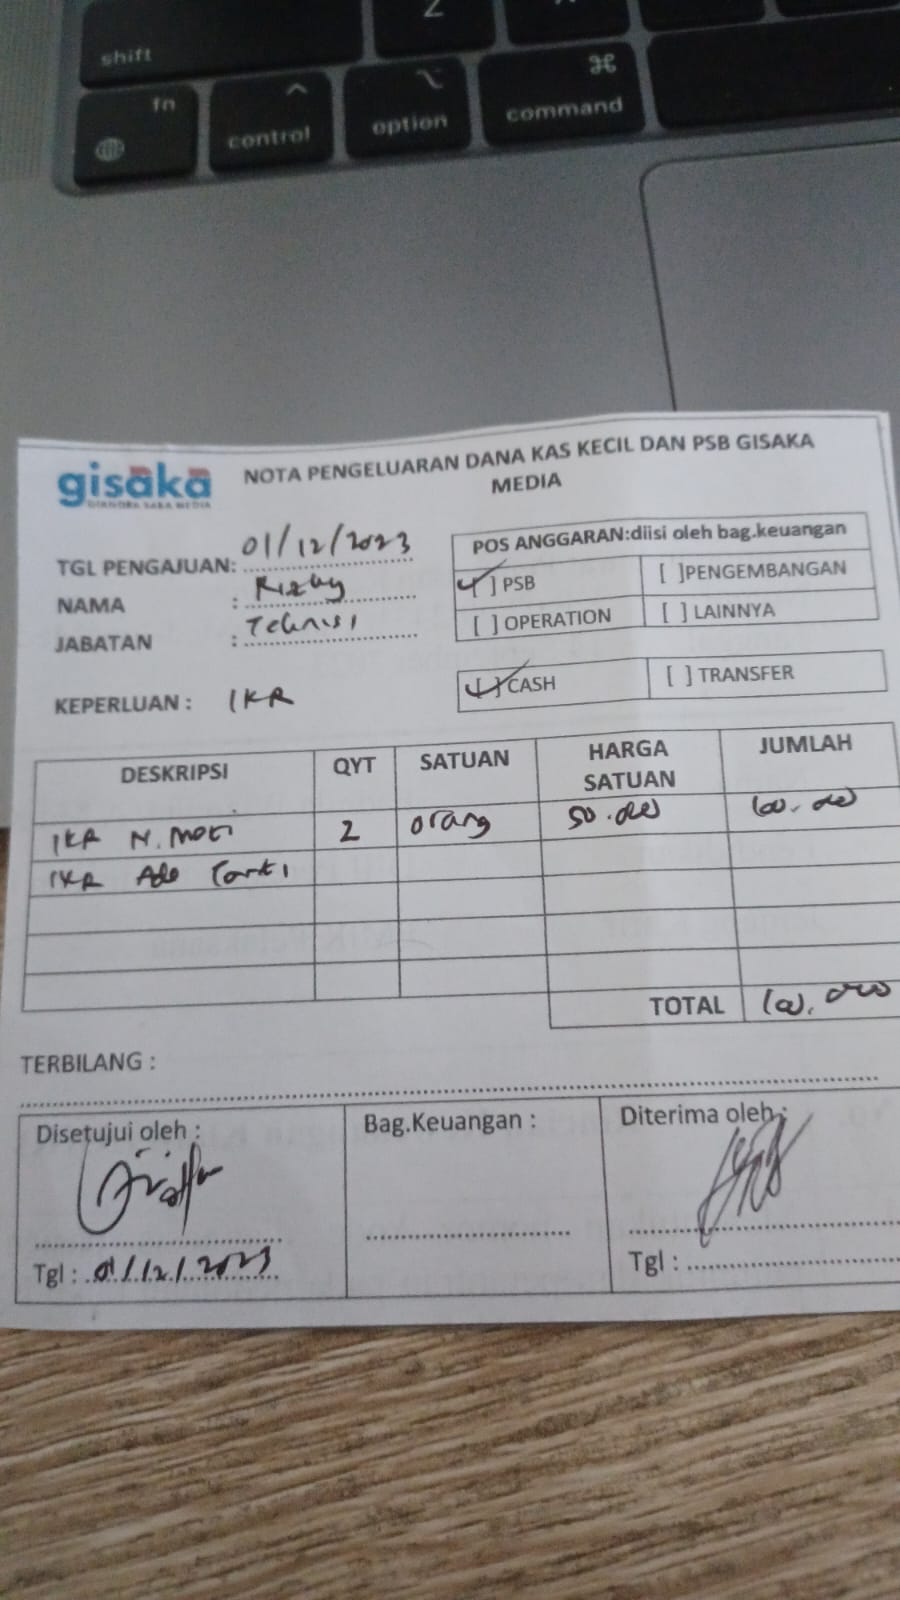 Z
shift
fn
control
option
⌘
command
gisaka
GIANDRA SAKA MEDIA
NOTA PENGELUARAN DANA KAS KECIL DAN PSB GISAKA
MEDIA
TGL PENGAJUAN: 01/12/2023
NAMA : Rizky
JABATAN : Teknisi
KEPERLUAN : IKR
POS ANGGARAN:diisi oleh bag.keuangan
[✓] PSB [ ]PENGEMBANGAN
[ ] OPERATION [ ] LAINNYA
[✓] CASH [ ] TRANSFER
DESKRIPSI QYT SATUAN HARGA SATUAN JUMLAH
IKR N. 2 orang 50.000 100.000
IKR
TOTAL 100.000
TERBILANG :
Disetujui oleh : Bag.Keuangan : Diterima oleh :
Tgl : 01/12/2023 Tgl :